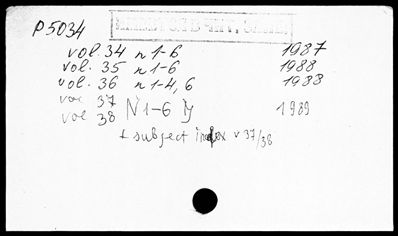 P5034
vol. 34 n 1-6 1987
vol. 35 n 1-6 1988
vol. 36 n 1-4, 6 1988
vol 37
vol 38 N 1-6 1989
+ subject index v 37/38